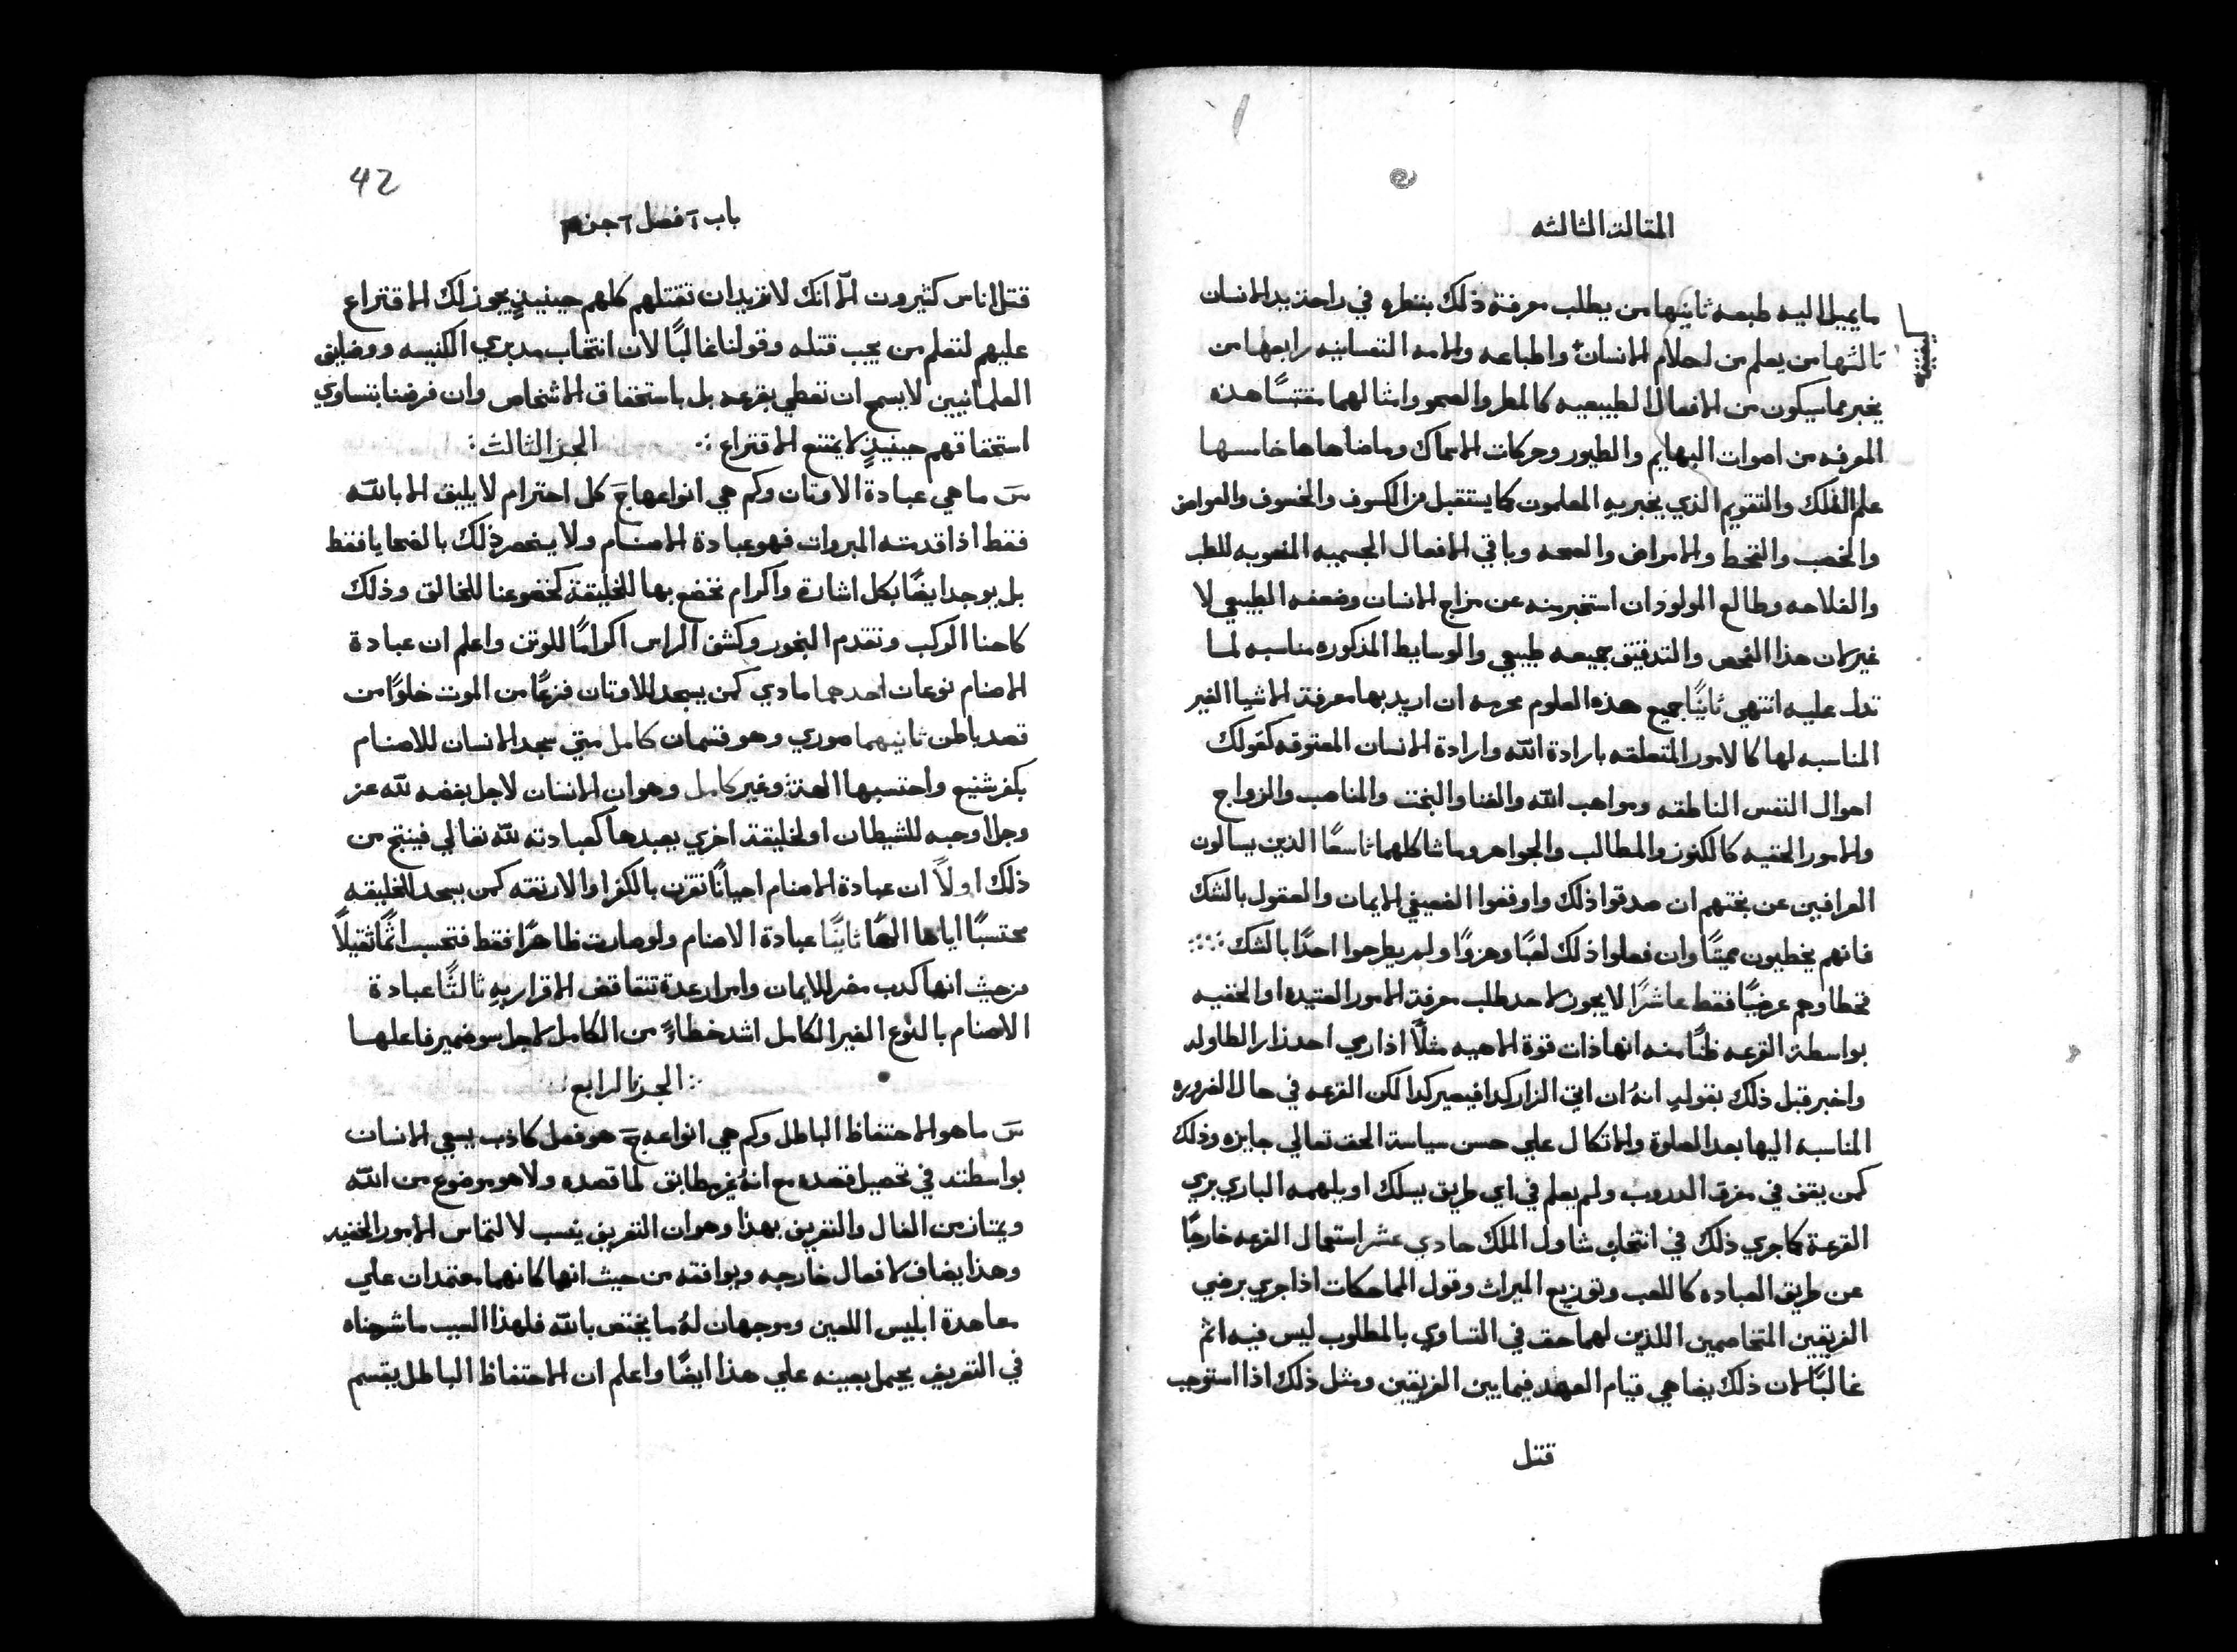 المقالة الثالثه
ما يميل اليه طبعه ثانيها من يطلب معرفة ذلك بنظره في راحة يد الانسان
ثالثها من يعلم من احلام الانسان واطباعه والامه النفسانيه رابعها من
يخبر بما سيكون من الافعال الطبيعيه كالمطر والصحو وامثالهما مقتبسًا هذه
المعرفه من اصوات البهايم والطيور وحركات الاسماك وما ضاهاها خامسها
علم الفلك والتقويم الذي يخبر به المعلمون كما يستقبل من الكسوف والخسوف والعوارض
والخصب والقحط والامراض والصحه وباقي الافعال الجسميه المنصوبه للطب
والفلاحه وطالع المولود ان استخبر منه عن مزاج الانسان وضعفه الطبيعي لا
غير لان هذا الفحص والتدقيق جميعه طبيعي والوسايط المذكوره مناسبه لما
تدل عليه انتهي ثانيًا جميع هذه العلوم محرمه ان اريد بها معرفة الاشيا الغير
المناسبه لها كالامور المتعلقه بارادة الله وارادة الانسان المعتوقه كقولك
احوال النفس الناطقه ومواهب الله والغنا والبخت والمناصب والزواج
والامور الخفيه كالكنوز والمطالب والجواهر وما شاكلهما تاسعًا الذين يسالون
العرافين عن بختهم ان صدقوا ذلك واوقفوا الضعيفي الايمان والعقول بالشك
فانهم يخطيون مميتًا وان فعلوا ذلك لعبًا وهزوًا ولم يطرحوا احدًا بالشك
فخطاوهم عرضيًا فقط عاشرًا لا يجوز لاحد طلب معرفة الامور العتيده او الخفيه
بواسطة القرعه ظنًا منه انها ذات قوة الاهيه مثلًا اذا رمي احد زار الطاوله
واخبر قبل ذلك بقوله انهُ ان اتي الزار كدا فيصير كدا لكن القرعه في حال الضروره
المناسبه اليها بعد الصلوة والاتكال علي حسن سياسة الحق تعالي جايزه وذلك
كمن يقف في مفرق الدروب ولم يعلم في اي طريق يسلك او يلهمه الباري برمي
القرعة كما جري ذلك في انتخاب شاول الملك حادي عشر استعمال القرعه خارجًا
عن طريق العباده كاللعب وتوزيع الميراث وقول المماحكات اذا جري برضي
الفريقين المتخاصمين اللذين لهما حق في التساوي بالمطلوب ليس فيه اثم
غالبًا لان ذلك يضاهي قيام العهد فيما بين الفريقين ومثل ذلك اذا استوجب
قتل
42
باب ٢ فصل ٢ جز ٣
قتل اناس كثيرون الا انك لا تريد ان تقتلهم كلهم حينيذٍ يجوز لك الاقتراع
عليهم لتعلم من يجب قتله وقولنا غالبًا لان انتخاب مدبري الكنيسه ووضايف
العلمانيين لا يسمح ان تعطي بقرعه بل باستحقاق الاشخاص وان فرضنا بتساوي
استحقاقهم حينيذٍ لا يمتنع الاقتراع الجز الثالث
س ما هي عبادة الاوثان وكم هي انواعها ج كل احترام لا يليق الا بالله
فقط اذا قدمته المبروات فهو عبادة الاصنام ولا ينحصر ذلك بالضحايا فقط
بل يوجد ايضًا بكل اشارة واكرام نخضع بها للخليقة كخضوعنا للخالق وذلك
كاحنا الركب وتقدم البخور وكشف الراس اكرامًا للوثن واعلم ان عبادة
الاصنام نوعان احدهما مادي كمن يسجد للاوثان فزعًا من الموت خلوًا من
قصد باطن ثانيهما صوري وهو قسمان كامل متي سجد الانسان للاصنام
بكفر شنيع واحتسبها الهة وغير كامل وهو ان الانسان لاجل بغضه لله عز
وجل اوحبه للشيطان او لخليقة اخري يعبدها كعبادته لله تعالي فينتج من
ذلك اولاً ان عبادة الاصنام احيانًا تقرن بالكفر او الارتقه كمن يسجد للخليقه
محتسبًا اياها الهًا ثانيًا عبادة الاصنام ولو صارت ظاهرًا فقط فتحسب اثمًا ثقيلًا
من حيث انها كدب مضر للايمان وامرار عدة تناقض الاقرار به ثالثًا عبادة
الاصنام بالنوع الغير الكامل اشد خطاءً من الكامل لاجل سو ضمير فاعلها
الجز الرابع
س ما هو الاحتفاظ الباطل وكم هي انواعه ج هو فعل كاذب يسعي الانسان
بواسطته في تحصيل قصده مع انهُ غير مطابق لما قصده ولا هو موضوع من الله
ويمتاز من الفال والتعريف بهذا وهو ان التعريف ينسب لالتماس الامور الخفيه
وهذا يضاف لافعال خارجه ويوافقه من حيث انها كانهما معتمدان علي
معاهدة ابليس اللعين وموجهان لهُ ما يختص بالله فلهذا السبب ما شرحناه
في التعريف يحمل بعينه علي هذا ايضًا واعلم ان الاحتفاظ الباطل يقسم